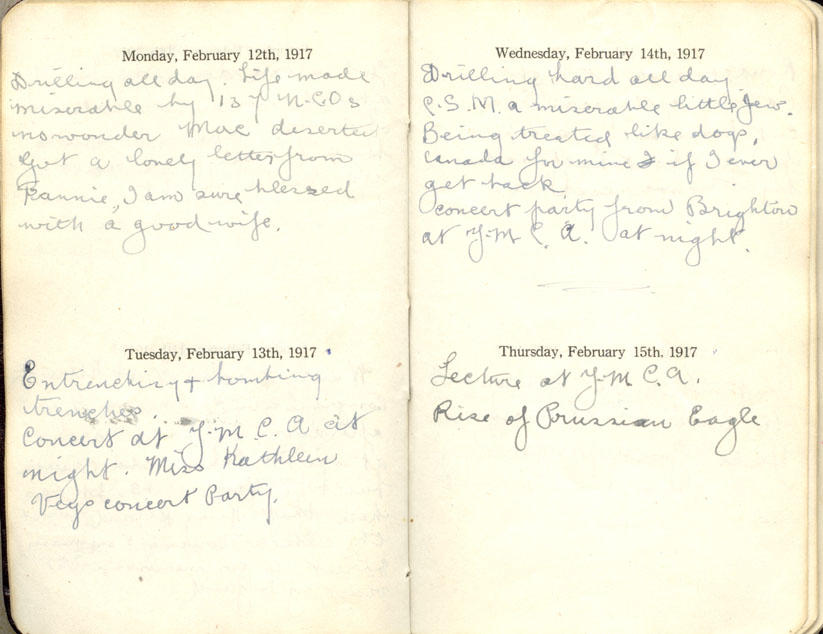 Monday, February 12th, 1917
Drilling all day. Life made
miserable by 137 N.C.Os
no wonder Mac deserted
Got a lonely letter from
Fannie, I am sure blessed
with a good wife.
Tuesday, February 13th, 1917
Entrenching + bombing
trenches.
Concert at Y.M.C.A at
night. Miss Kathleen
Veys concert Party.
Wednesday, February 14th, 1917
Drilling hard all day
C.S.M. a miserable little Jew.
Being treated like dogs,
Canada for mine if I ever
get back
concert party from Brighton
at Y.M.C.A. at night.
Thursday, February 15th, 1917
Lecture at Y.M.C.A.
Rise of Prussian Eagle